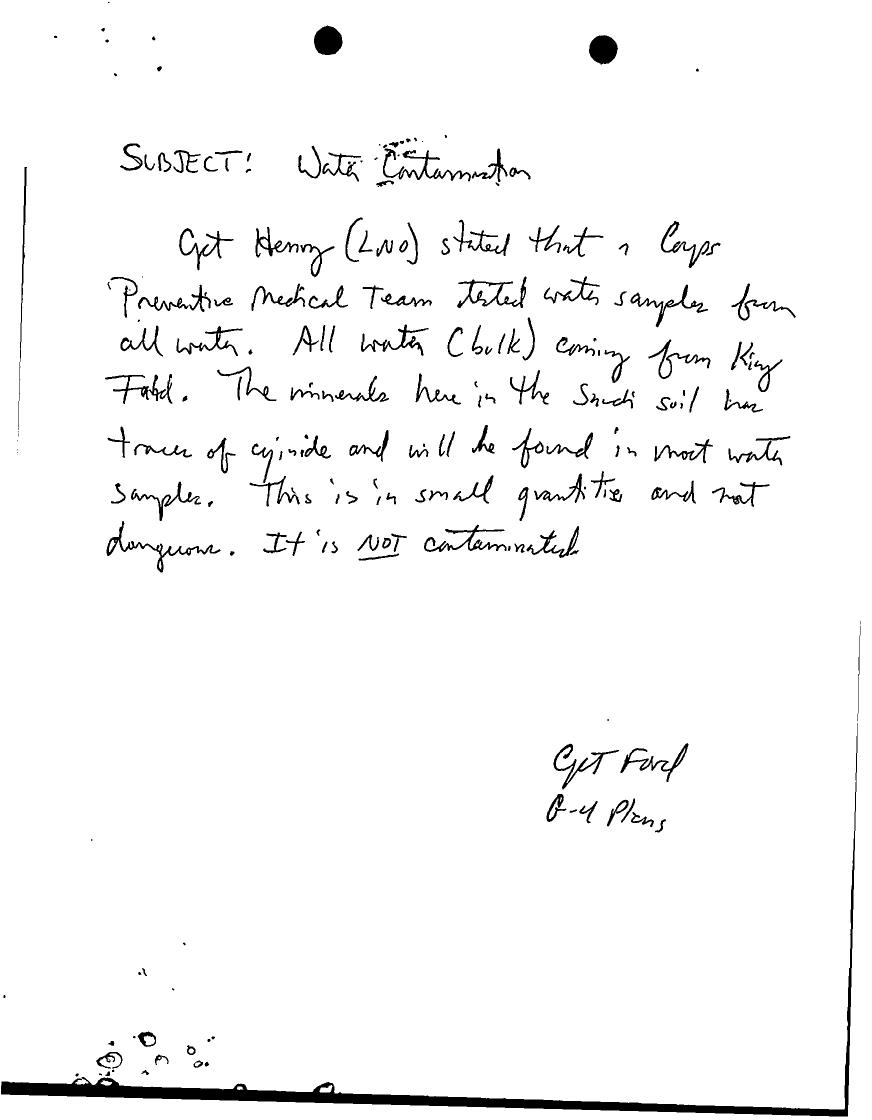 SUBJECT: Water Contamination
Cpt Henry (LNO) stated that a Corps
Preventive Medical Team tested water samples from
all water. All water (bulk) coming from King
Fahd. The minerals here in the Saudi soil has
traces of cyinide and will be found in most water
samples. This is in small quantities and not
dangerous. It is NOT contaminated
Cpt Ford
G-4 Plans